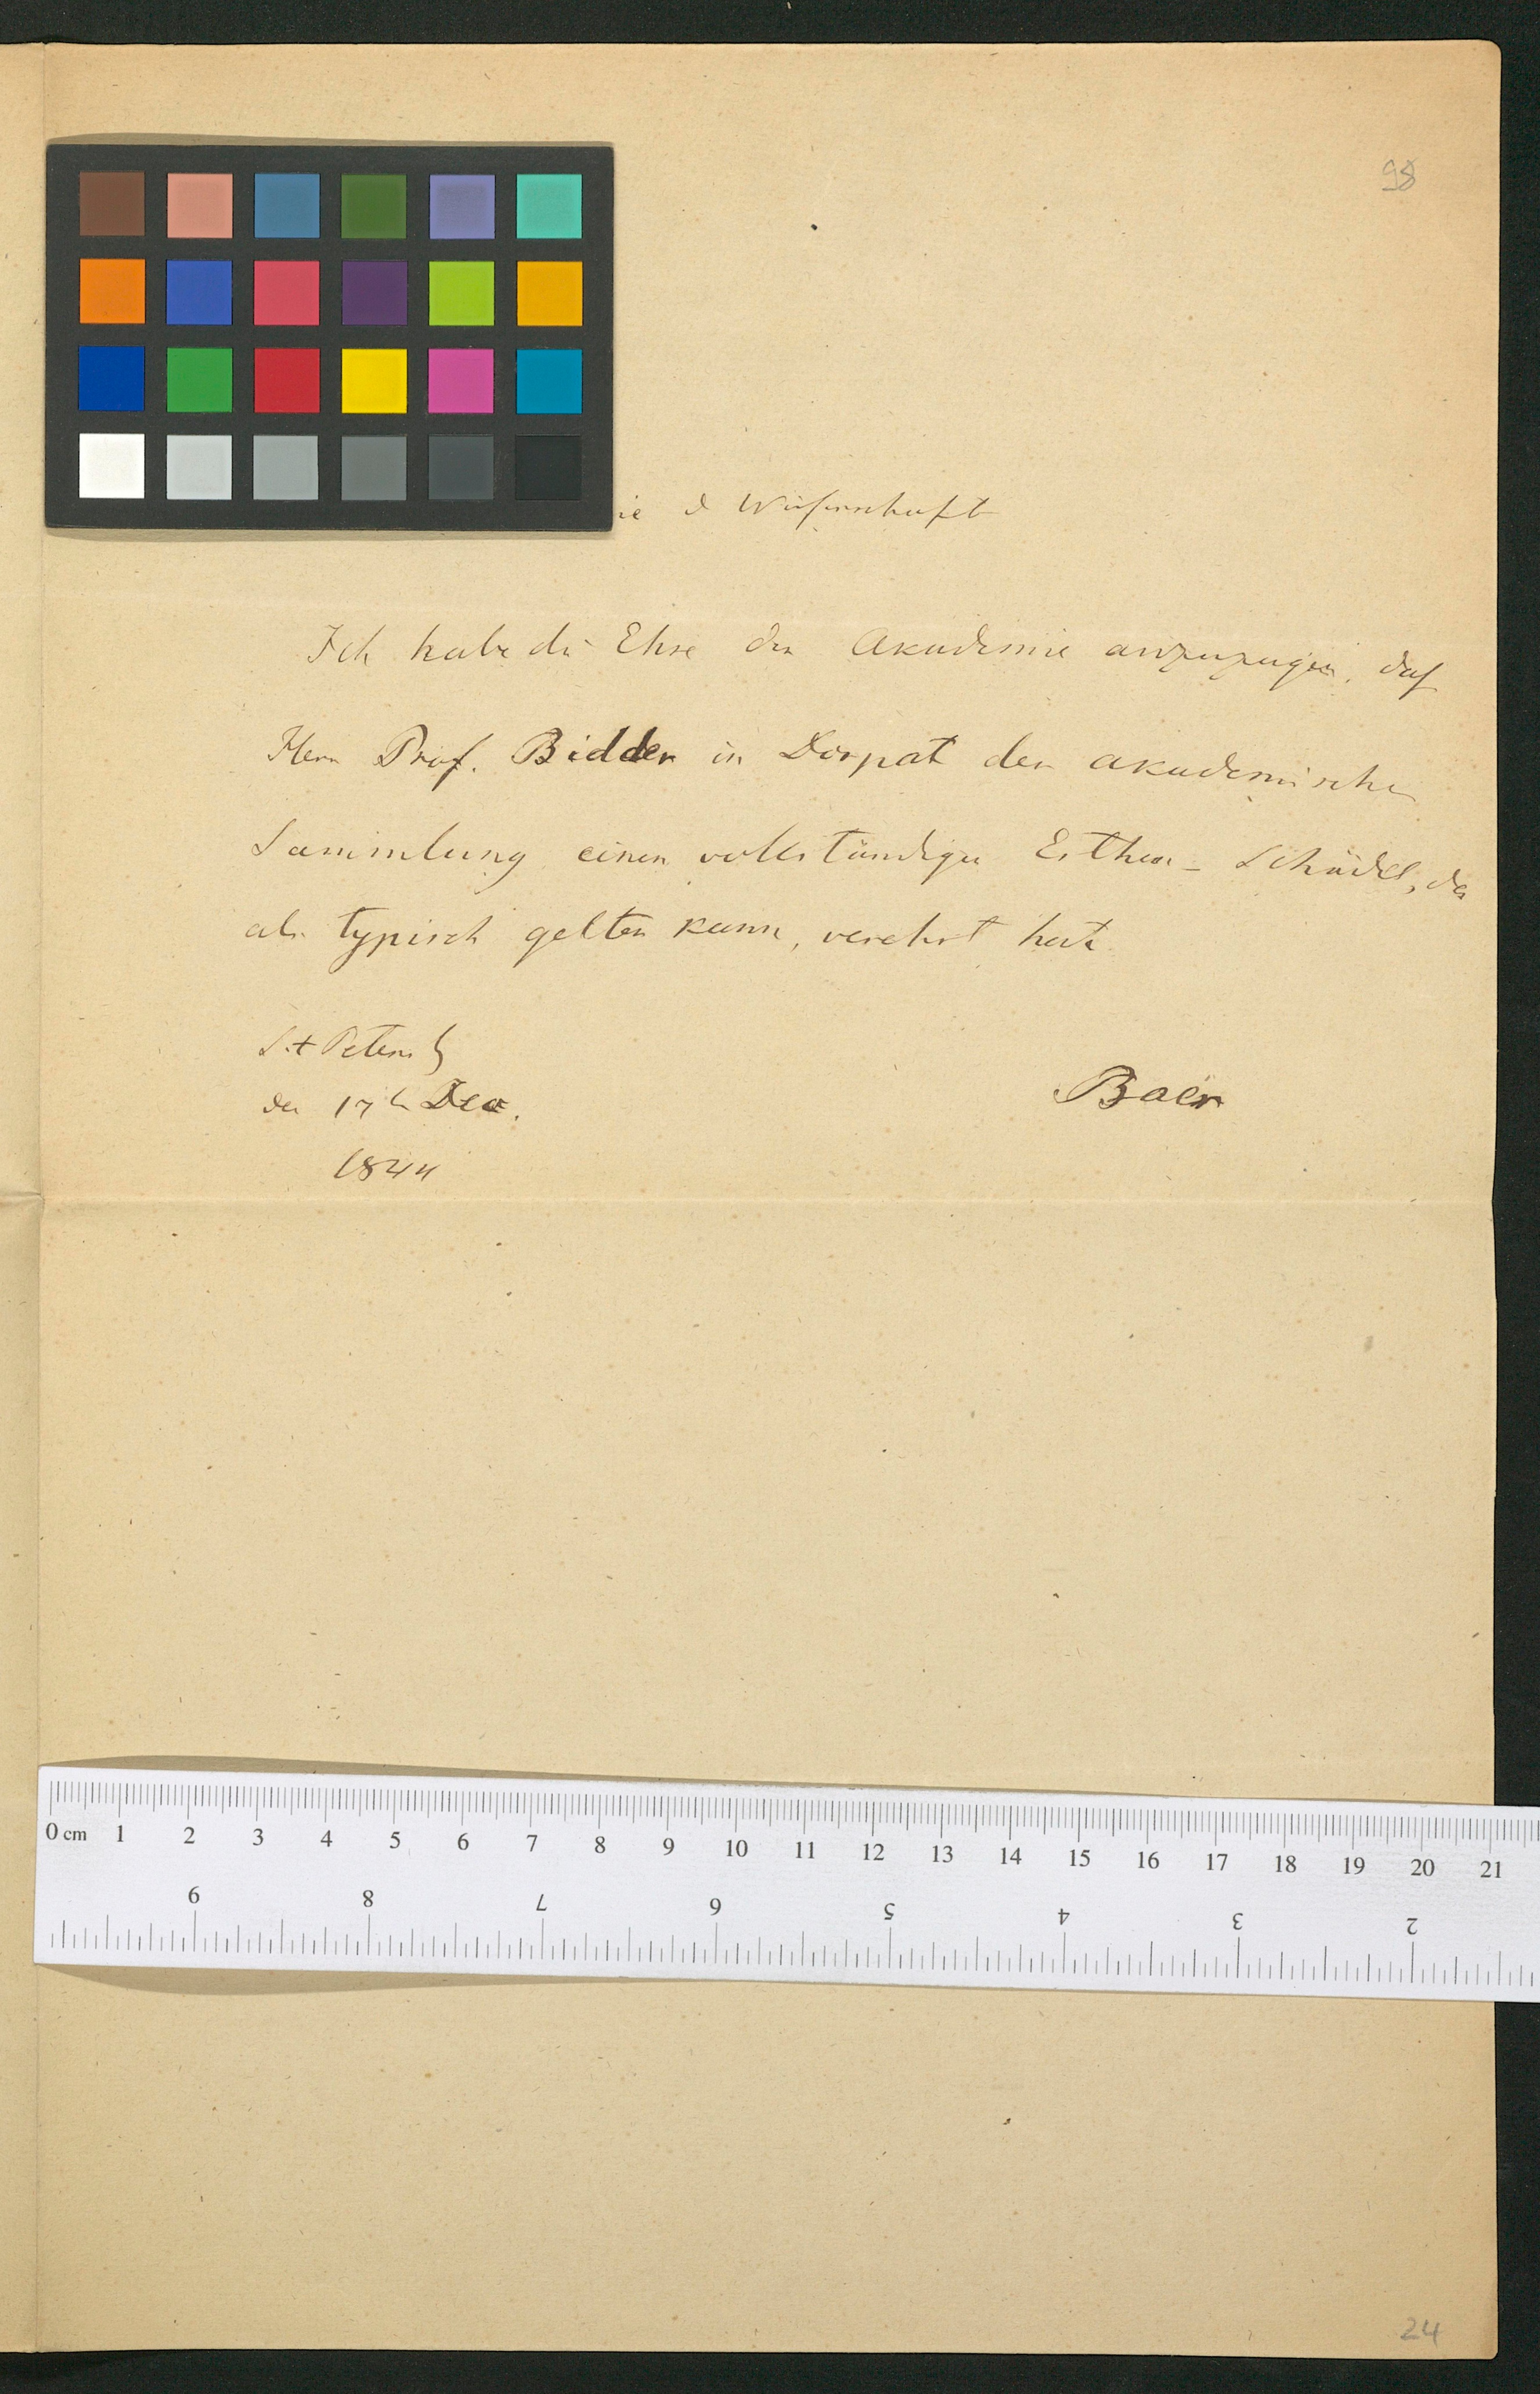 98
ie d Wissenschaft
Ich habe die Ehre der Akademie anzuzeigen, daß
Herr Prof. Bidder in Dorpat der akademischen
Sammlung einen vollständigen Esthen-Schädel, der
als typisch gelten kann, verehrt hat.
St Petersb
den 17ten Dec.
1844
Baer
0 cm 1 2 3 4 5 6 7 8 9 10 11 12 13 14 15 16 17 18 19 20 21
9 8 7 6 5 4 3 2
24